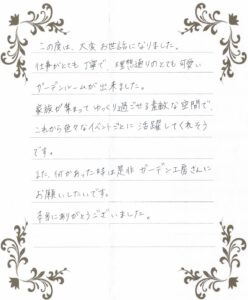 この度は、大変お世話になりました。
仕事がとても丁寧で、理想通りのとても可愛い
ガーデンルームが出来ました。
家族が集まってゆっくり過ごせる素敵な空間で、
これから色々なイベントごとに活躍してくれそう
です。
また、何かあった時は是非ガーデン工房さんに
お願いしたいです。
本当にありがとうございました。